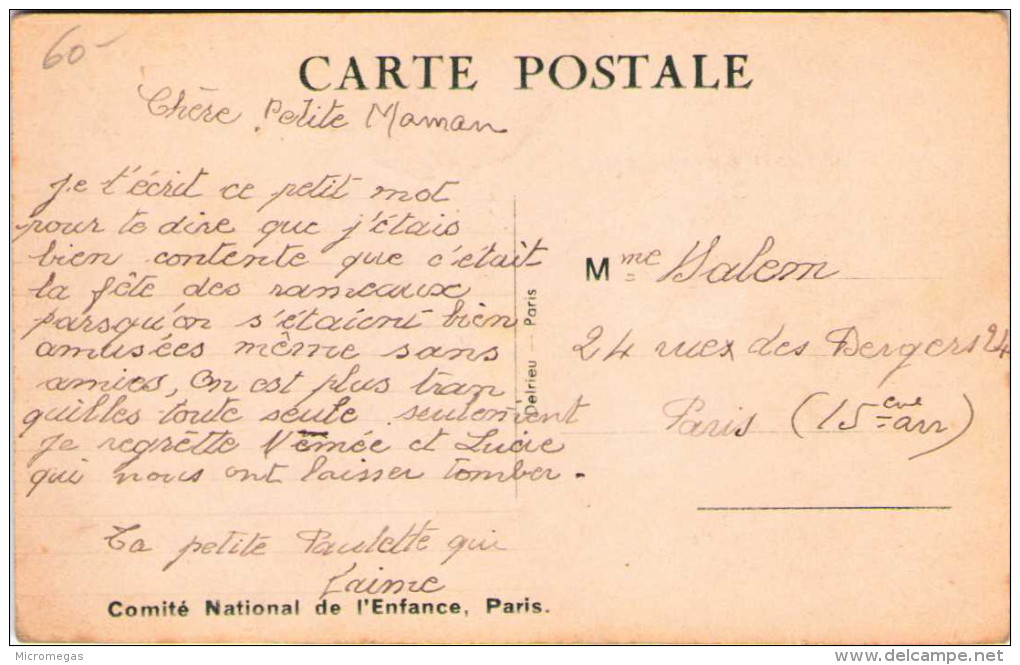 60-
CARTE POSTALE
Chère Petite Maman
Je t'écrit ce petit mot
pour te dire que j'étais
bien contente que c'était
la fête des rameaux
parsqu'on s'étaient bien
amusées même sans
amies, on est plus tran
quilles toute seule seulement
je regrette Nemée et Lucie
qui nous ont laisser tomber.
Ta petite Paulette qui
t'aime
Comité National de l'Enfance, Paris.
Delrieu - Paris
Mme Halem
24 rues des Bergers 24
Paris (15ème arr)
Micromegas
www.delcampe.net